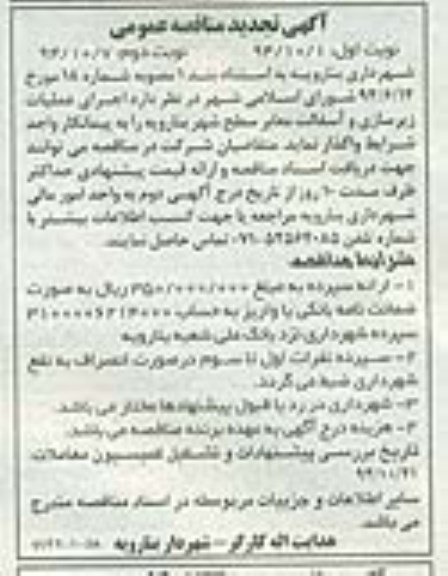 آگهی تجدید مناقصه عمومی
نوبت اول: ۹۴/۱۰/۱ نوبت دوم: ۹۴/۱۰/۷
شهرداری بنارویه به استناد بند ۱ مصوبه شماره ۱۸ مورخ
۹۴/۶/۱۴ شورای اسلامی شهر در نظر دارد اجرای عملیات
زیرسازی و آسفالت معابر سطح شهر بنارویه را به پیمانکار واجد
شرایط واگذار نماید. متقاضیان شرکت در مناقصه می توانند
جهت دریافت اسناد مناقصه و ارائه قیمت پیشنهادی حداکثر
ظرف مدت ۱۰ روز از تاریخ درج آگهی دوم به واحد امور مالی
شهرداری بنارویه مراجعه یا جهت کسب اطلاعات بیشتر با
شماره تلفن تماس حاصل نمایند.
شرایط مناقصه:
۱- ارائه سپرده به مبلغ ۳۵۰/۰۰۰/۰۰۰ ریال به صورت
ضمانت نامه بانکی یا واریز به حساب
سپرده شهرداری نزد بانک ملی شعبه بنارویه
۲- سپرده نفرات اول تا سوم در صورت انصراف به نفع
شهرداری ضبط می گردد.
۳- شهرداری در رد یا قبول پیشنهادها مختار می باشد.
۴- هزینه درج آگهی به عهده برنده مناقصه می باشد.
تاریخ بررسی پیشنهادات و تشکیل کمیسیون معاملات:
سایر اطلاعات و جزییات مربوطه در اسناد مناقصه مندرج
می باشد.
هدایت اله کارگر - شهردار بنارویه